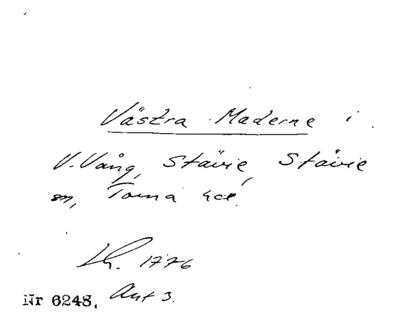 Västra Maderne i
V. Vång, Stävie, Stävie
sn, Torna hd.
Lh. 1776
Nr 6248. Akt 3.